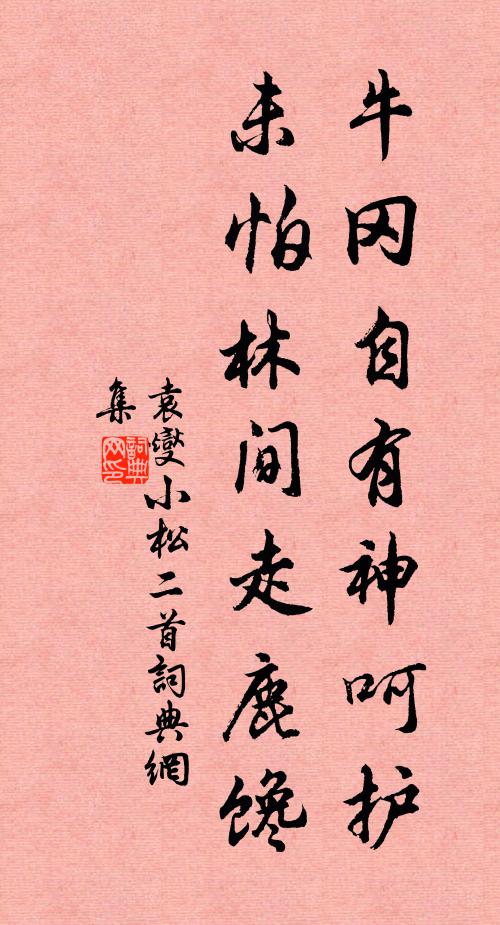 牛冈自有神呵护
未怕林间走鹿馋
袁燮小松二首詞典網
集
詞典网印